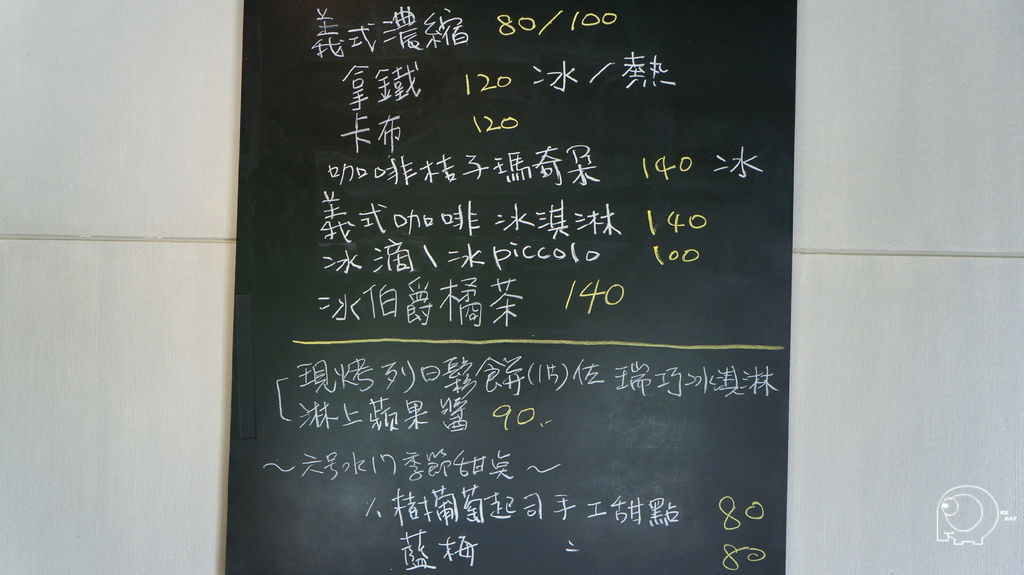 義式濃縮 80/100
拿鐵 120 冰/熱
卡布 120
咖啡桔子瑪奇朵 140 冰
義式咖啡冰淇淋 140
冰滴\冰piccolo 100
冰伯爵橘茶 140
現烤列日鬆餅(1片)佐 瑞巧冰淇淋
淋上蘋果醬 90.-
~六号水门季節甜点~
樹葡萄起司手工甜點 80
藍梅 〃 80